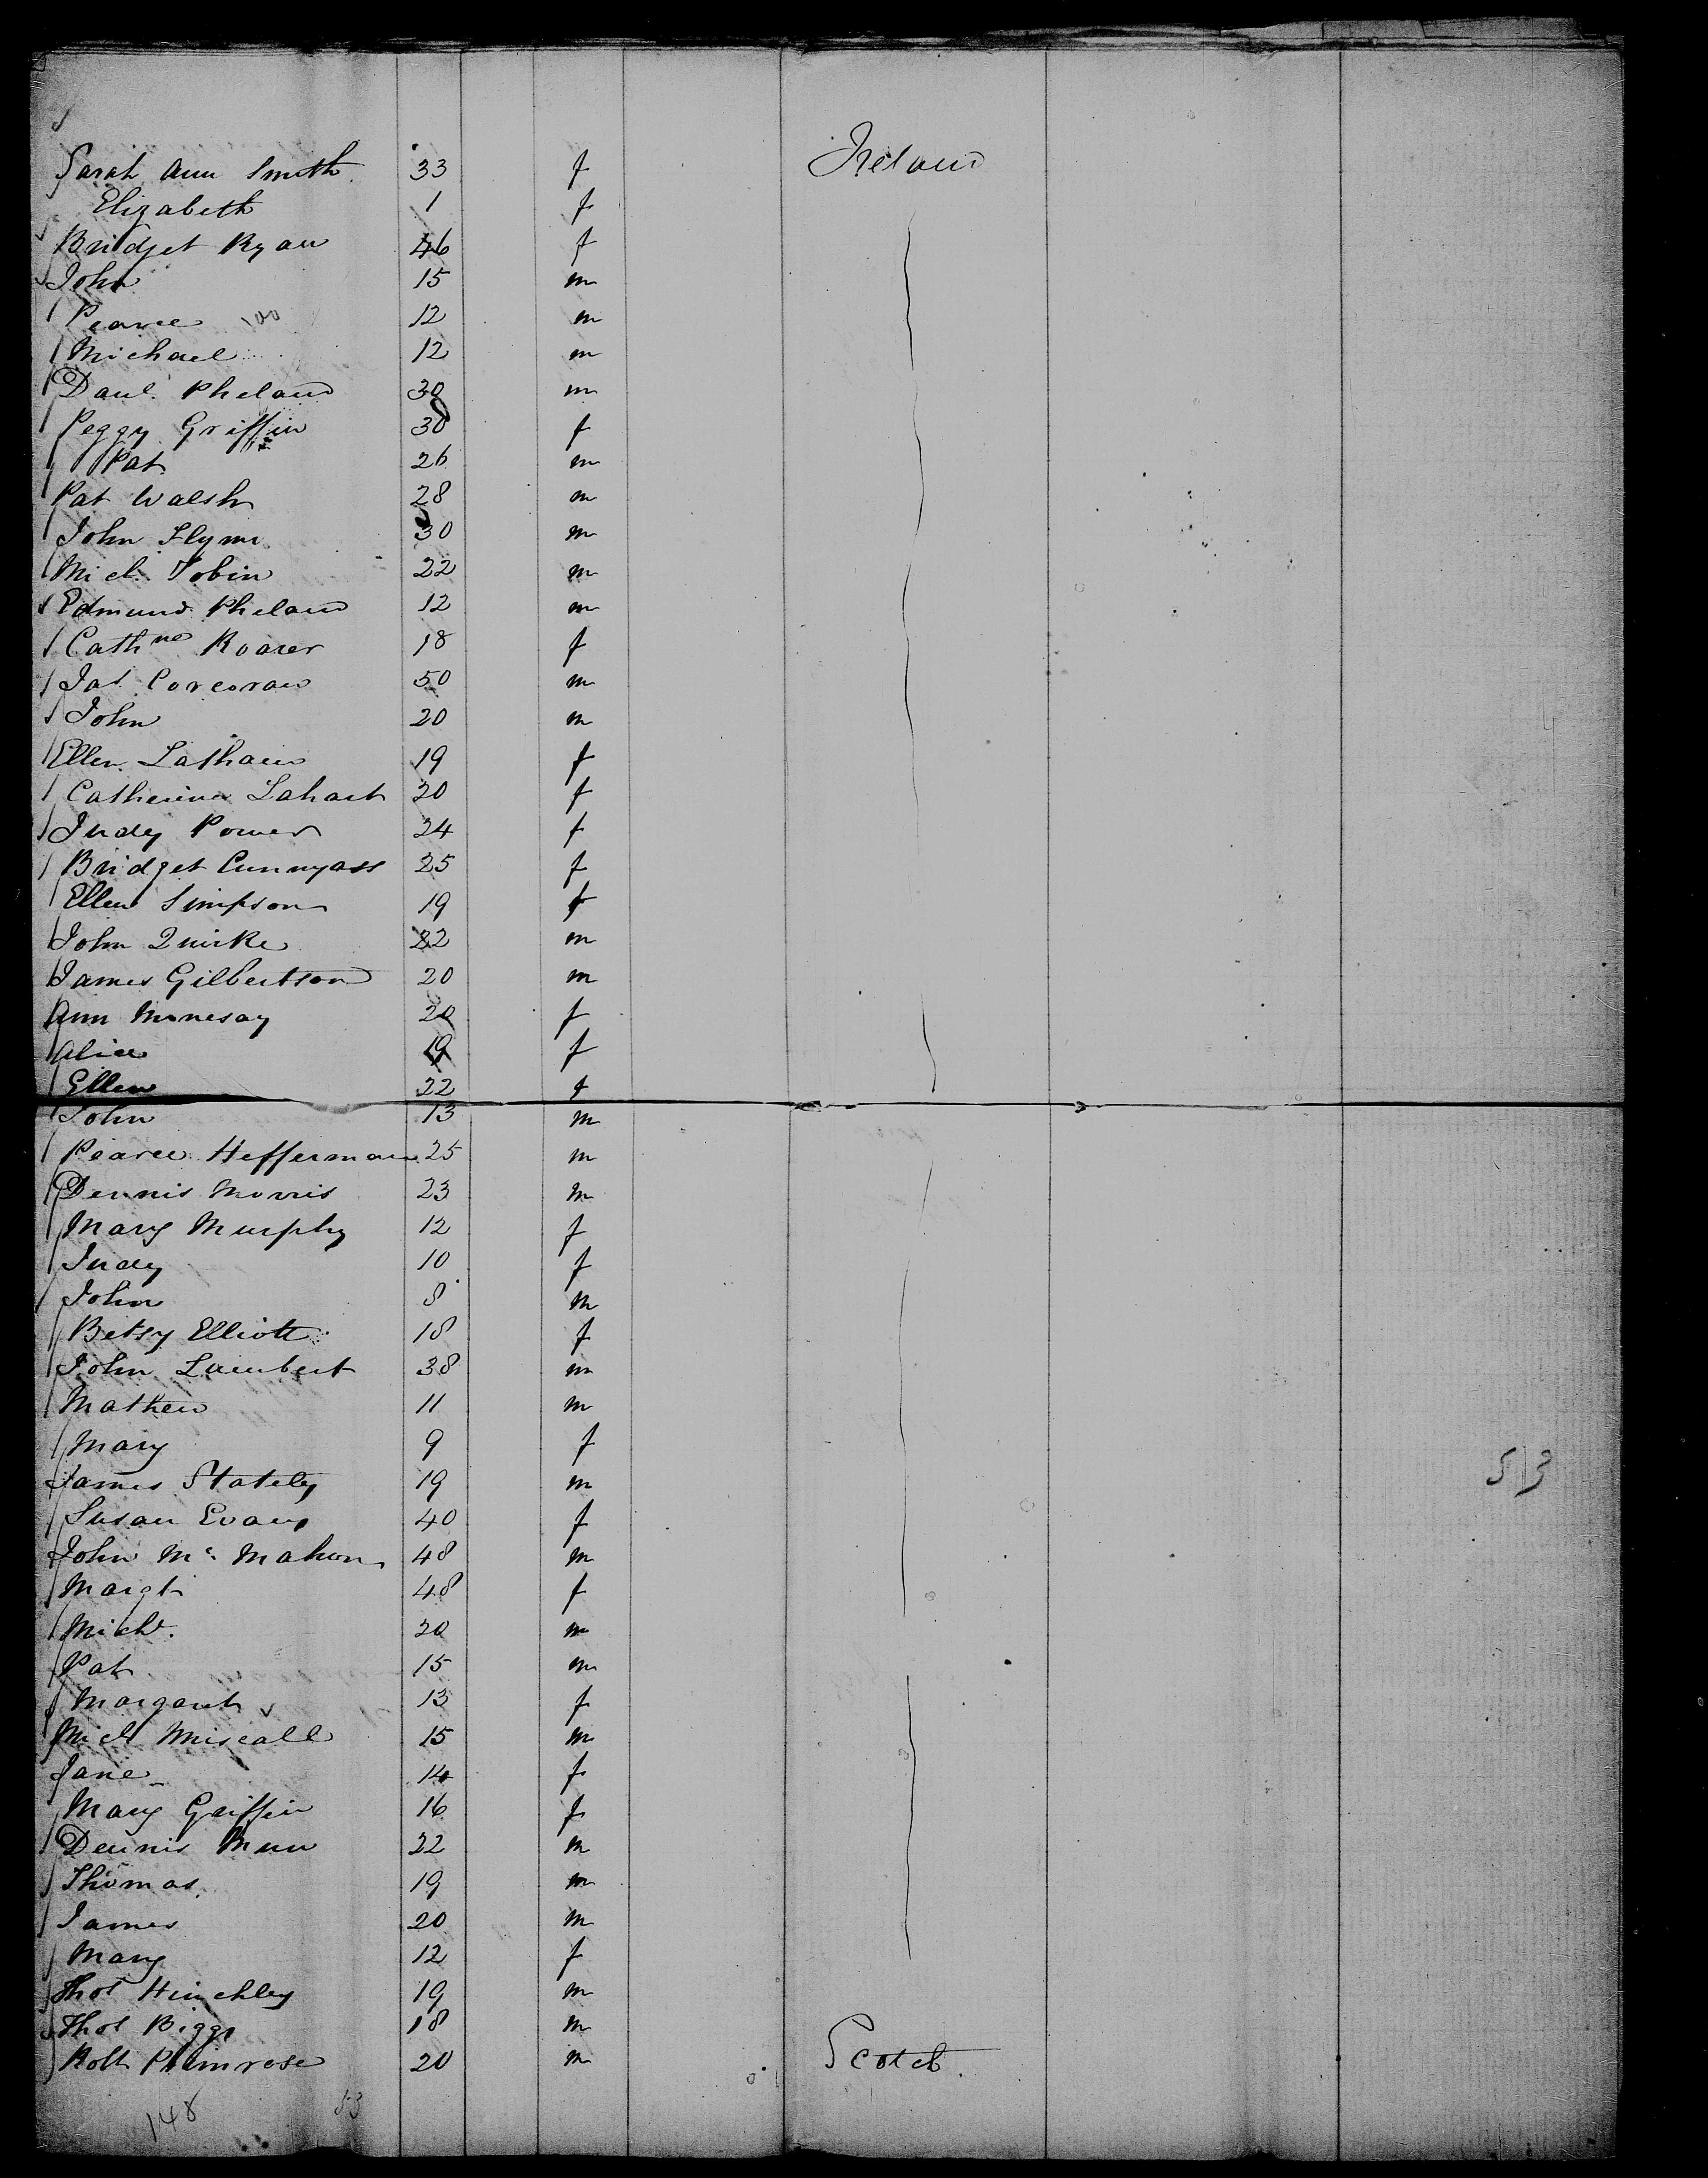 Sarah Ann Smith 33 f Ireland
Elizabeth 1 f
Bridget Ryan 46 f
John 15 m
Pearce 100 12 m
Michael 12 m
Danl. Phelan 30 m
Peggy Griffin 30 f
Pat 26 m
Pat Walsh 28 m
John Flynn 30 m
Micl. Tobin 22 m
Edmund Phelan 12 m
Cathne Roarer 18 f
Jas Corcoran 50 m
John 20 m
Ellen 19 f
Catherine Lahart 20 f
Judy Power 24 f
Bridget Cunnyass 25 f
Ellen Simpson 19 f
John Quirke 22 m
James Gilbertson 20 m
Ann 20 f
Alice 19 f
Ellen 22 f
John 13 m
Pearce Heffernan 25 m
Dennis Morris 23 m
Mary Murphy 12 f
Judy 10 f
John 8 m
Betsy Elliott 18 f
John Lambert 38 m
Mathew 11 m
Mary 9 f
James Stately 19 m
Susan Evans 40 f
John Mc Mahon 48 m
Margt 48 f
Michl. 20 m
Pat 15 m
Margaret 13 f
Micl Miscall 15 m
Jane 14 f
Mary Griffin 16 f
Dennis 22 m
Thomas 19 m
James 20 m
Mary 12 f
Thos Hinchley 19 m
Thos Biggs 18 m
Robt Primrose 20 m Scotch.
148 53